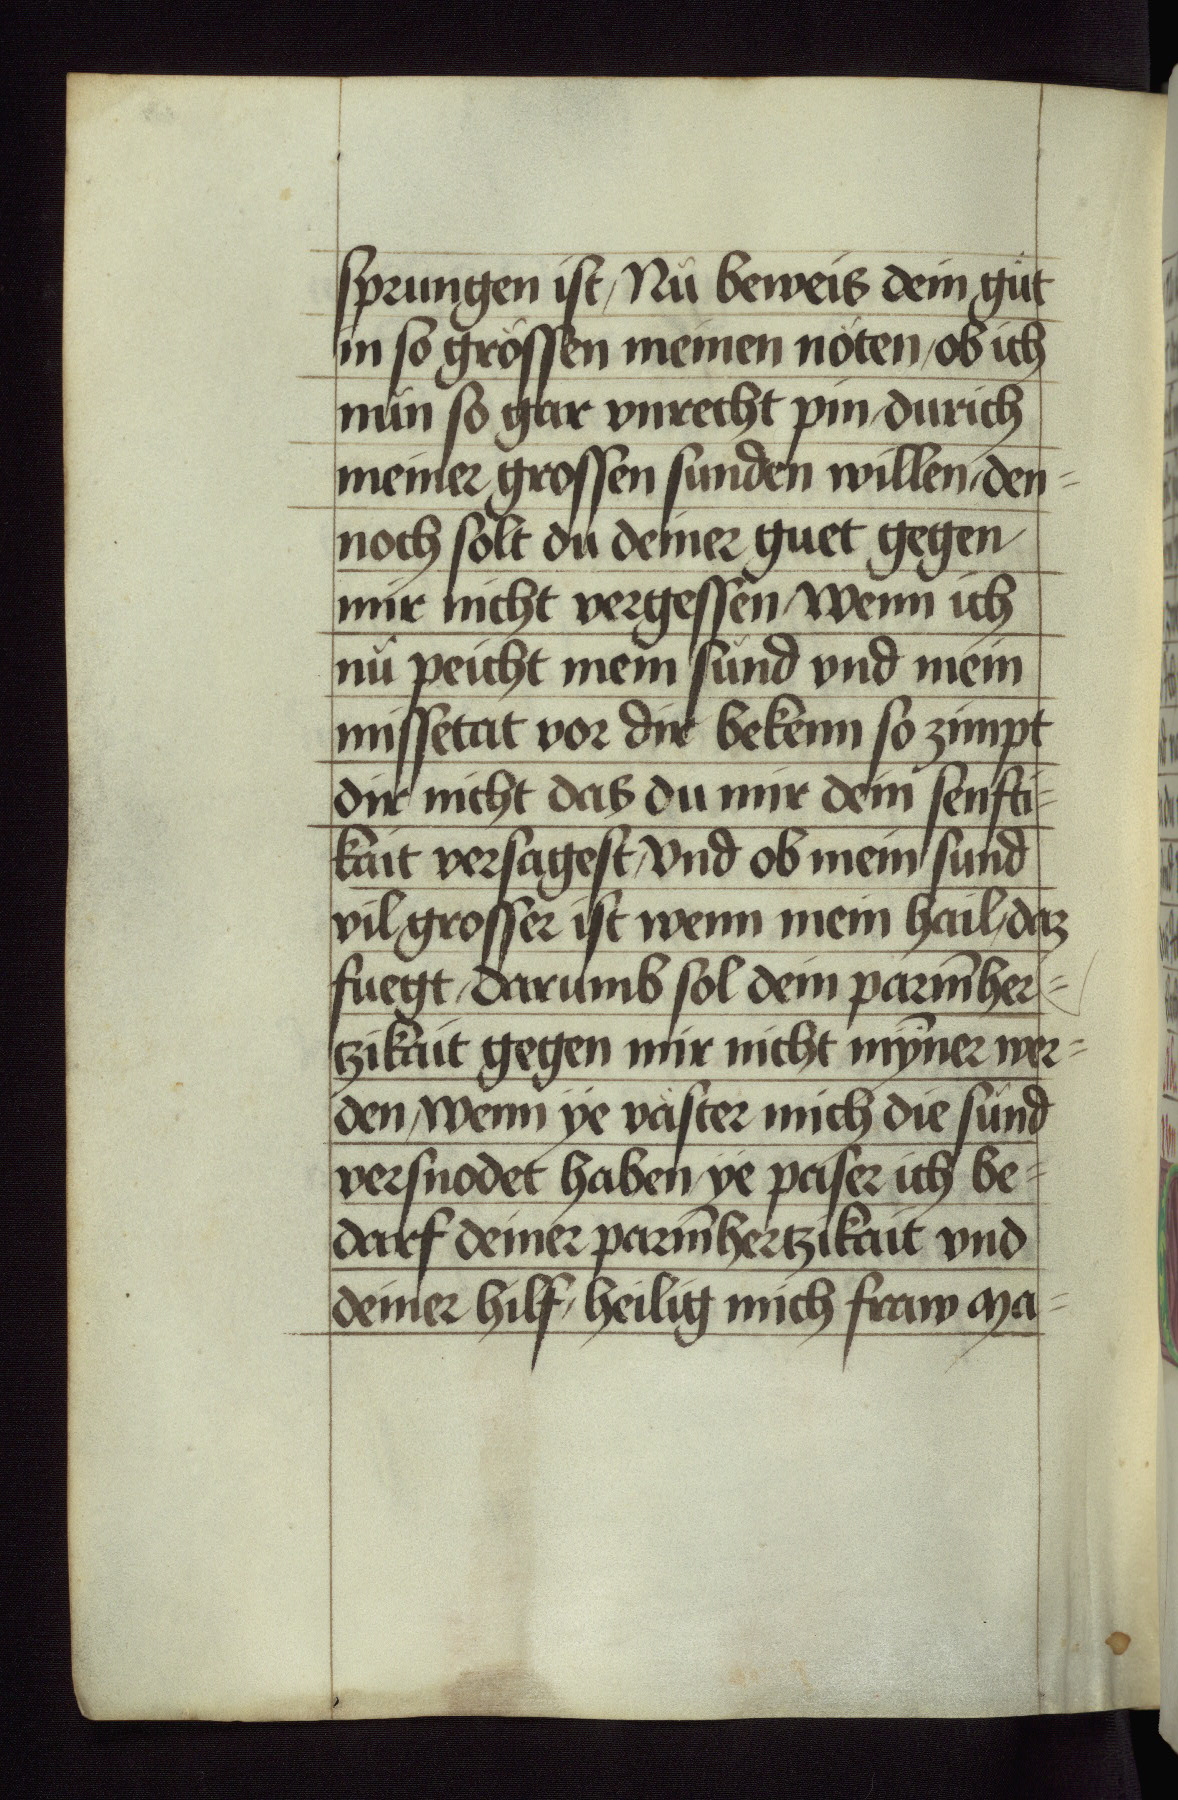 sprungen ist / Nů beweis dein gůt
in so grössen meinen nöten / ob ich
nün so gar vnrecht pin / durich
meiner grossen sunden willen / den=
noch solt du deiner guet gegen
mir nicht vergessen / Wenn ich
nů peicht mein sünd vnd mein
missetat vor dir bekenn so zimpt
dir nicht das du mir dein senfti=
kait versagest / Vnd ob mein sund
vil grosser ist wenn mein hail / daz
fuegt / darumb sol dein parm̄her=
tzikait gegen mir nicht mÿner wer=
den / Wenn ÿe väster mich die sünd
versnodet haben / ÿe paser ich be=
darf deiner parm̄hertzikait vnd
deiner hilf / heilig mich fraw Ma=